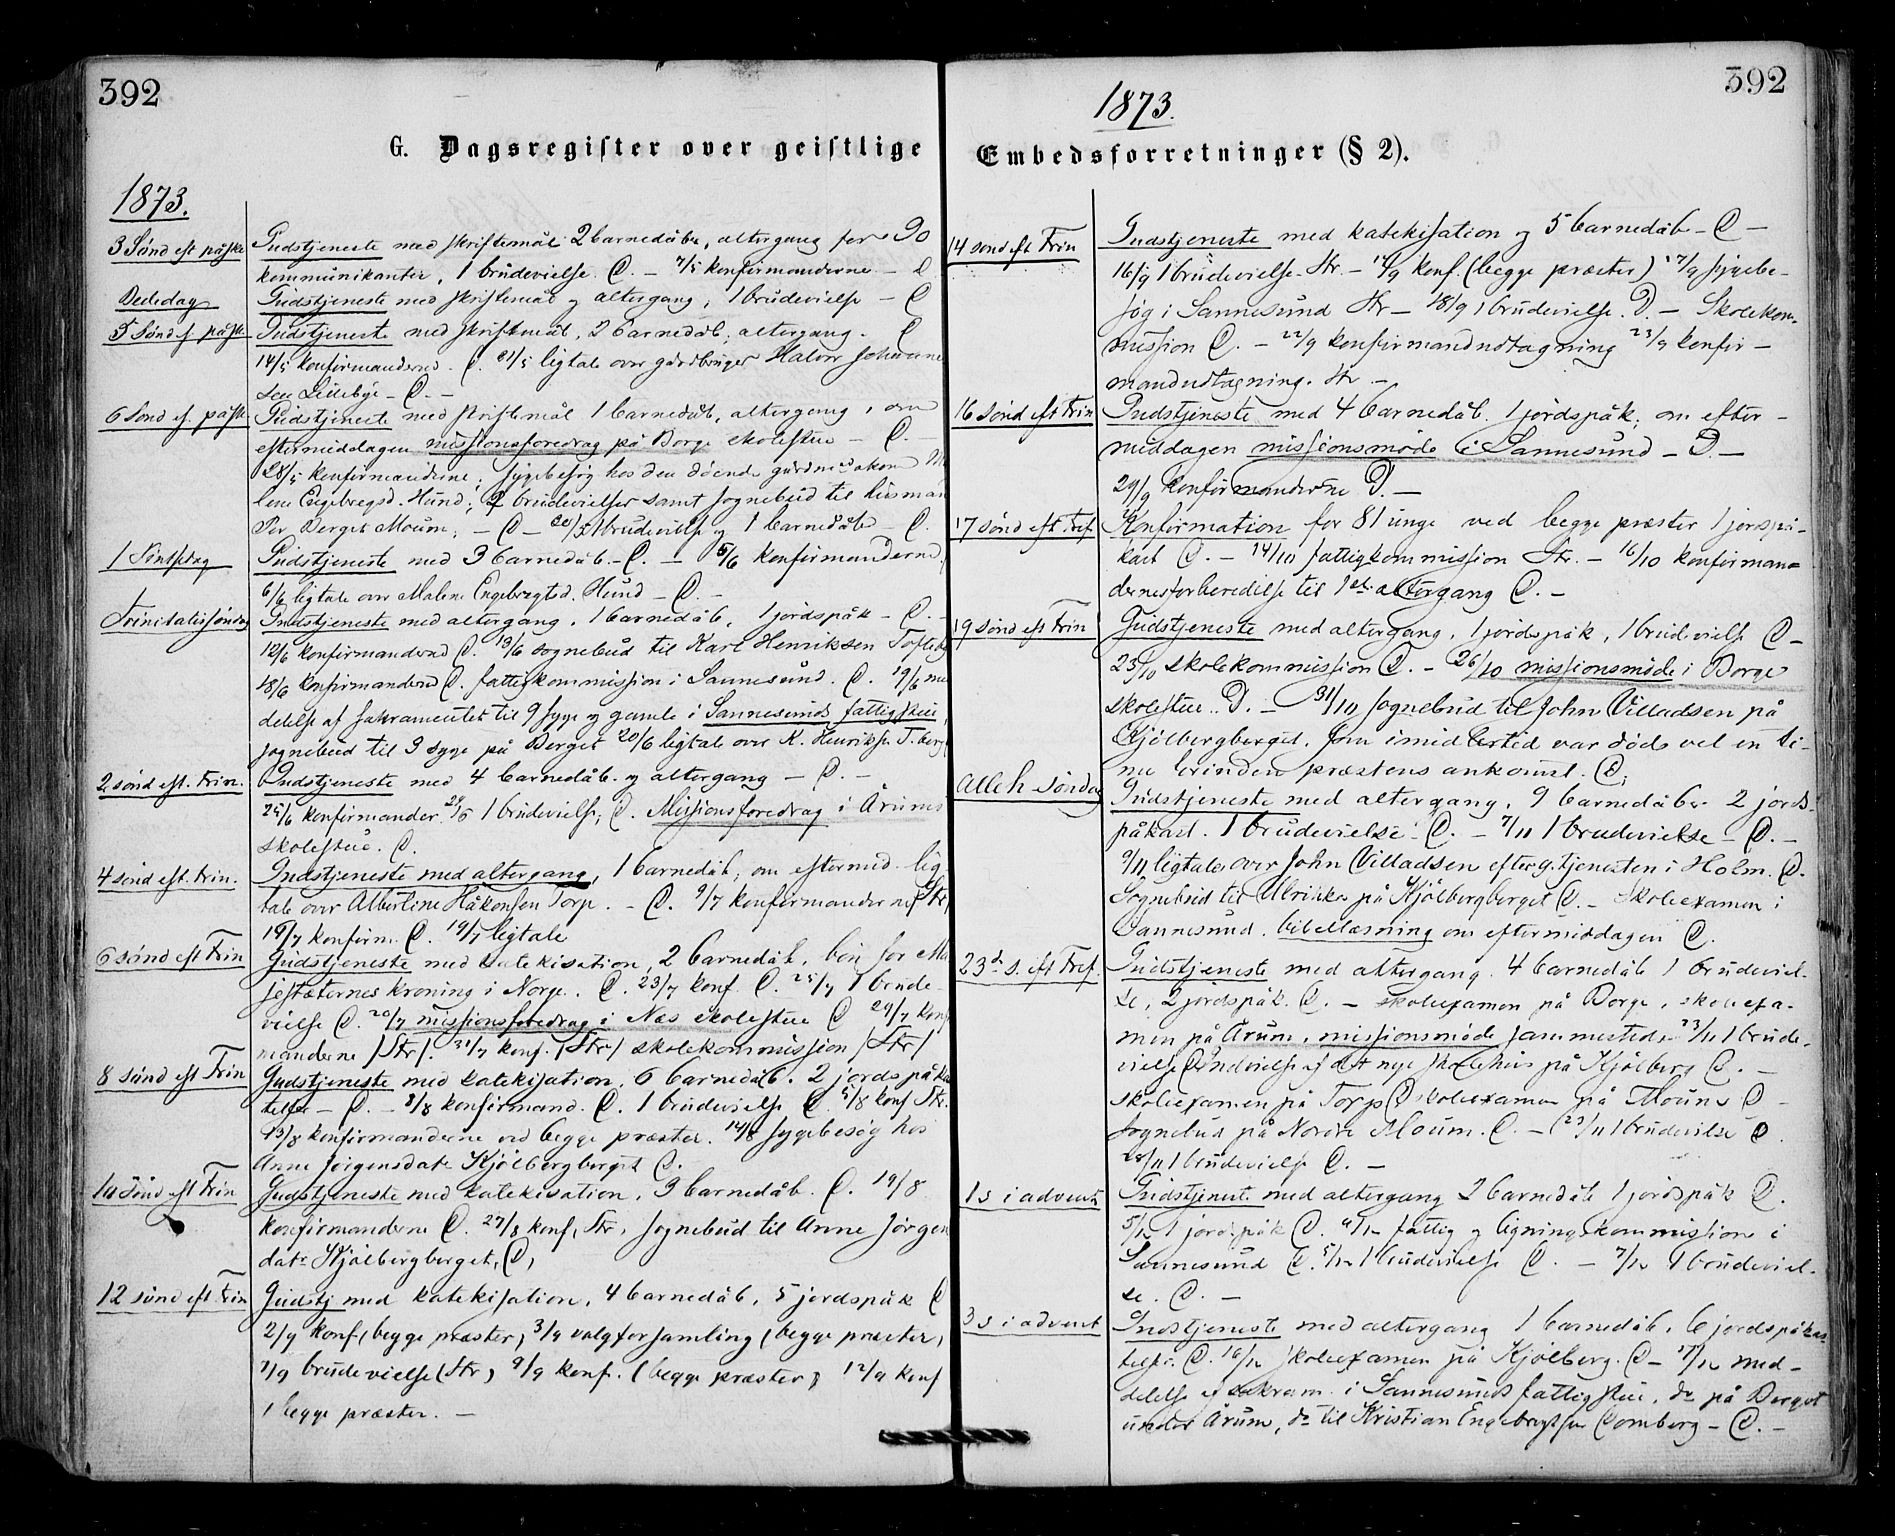 392
G. Dagsregister over geistlige
1873.
3 Sönd eft påske Gudstjeneste med skriftemål 2 barnedåbe, altergang for 90
kommunikanter, 1 brudevielse. C. – 7/5 konfirmanderne – C
Bededag Gudstjeneste med skriftemål og altergang, 1 brudevielse – C
5 Sönd f. påske Gudstjeneste med skriftemål, 2 barnedåb, altergang. C
14/5 konfirmanderne. C. 21/5 ligtale over gårdbruger Halvor Johanne
sen Lillebye – C. –
6 Sönd f. påske Gudstjeneste med skriftemål 1 barnedåb, altergang, om
eftermiddagen missionsforedrag på Borge skolestue – C. –
28/5 konfirmanderne; sygebesög hos den döende
Engebregsd. Hund; 2 brudevielser samt sognebud til husman
Per Berget Moum; – C – 1 brudevielse og 1 barnedåb – C.
1 Pintsedag Gudstjeneste med 3 barnedåb – C. – 5/6 konfirmanderne,
6/6 ligtale over Malene Engebregtsd. Hund – C. –
Trinitatissöndag Gudstjeneste med altergang, 1 barnedåb, 1 jordspåk – C. –
12/6 konfirmanderne C. 13/6 sognebud til Karl Henriksen Tofteberg
18/6 konfirmanderne C. fattigkommission i Sannesund. C. 19/6 med
delelse af sakramentet til 9 syge og gamle i Sannesunds fattigstue,
sognebud til 3 syge på Berget 20/6 ligtale over K. Henriks. T.berg
2 sönd eft. Trin. Gudstjeneste med 4 barnedåb. og altergang – C. –
25/6 konfirmander. 1 brudevielse, C. Missionsforedrag i Årums
skolestue. C.
4 sönd eft. Trin. Gudstjeneste med altergang, 1 barnedåb, om eftermid. lig-
tale over Albertine Håkonsen Torp. – C. 9/7 konfirmanderne /Str/
16/7 konfirm. C. 19/7 ligtale
6 sönd eft Trin Gudstjeneste med katekisation, 2 barnedåb, bön for Ma
jestæternes kroning i Norge. C. 23/7 konf. C. 25/7 1 brude-
vielse C. 20/7 missionsforedrag i Næs skolestue C 29/7 konf
manderne /Str/. 31/7 konf. /Str/ skolekommission /Str/
8 sönd eft Trin Gudstjeneste med katekisation. 6 barnedåb. 2 jordspåka
telse – C. – 3/8 konfirmand. C. 1 brudevielse C. 5/8 konf Str.
13/8 konfirmanderne ved begge præster. 14/8 sygebesög hos
Anne Jörgensdatr Kjölbergberget C.
10 sönd eft Trin Gudstjeneste med katekisation. 3 barnedåb. C. 19/8
konfirmanderne C. 27/8 konf, Str, sognebud til Anne Jörgen
datr Kjölbergberget, C,
12 sönd eft Trin Gudstj med katekisation, 4 barnedåb, 5 jordspåk C
2/9 konf, (begge præster, 3/9 valgforsamling (begge præster,
7/9 brudevielse (Str) 9/9 konf. (begge præster) 12/9 konf
( begge præster. –
392
1873.
Embedsforretninger (§ 2).
14 sönd eft Trin Gudstjeneste med katekisation og 5 barnedåb – C –
16/9 1 brudevielse – Str. – 17/9 konf. (begge præster) 17/9 sygebe-
sög i Sannesund Str – 18/9 1 brudevielse. D. – Skolekom-
mission C. – 22/9 konfirmandudtagning 23/9 konfir –
mandudtagning. Str –
16 sönd eft Trin Gudstjeneste med 4 barnedåb. 1 jordspåk; om efter –
middagen missionsmöde i Sannesund – D. –
29/9 konfirmanderne D. –
17 sönd eft. Tref. Konfirmation for 81 unge ved begge præster 1 jordspå-
kast C. – 14/10 fattigkommission Str. – 16/10 konfirman-
dernes forberedelse til 1ste altergang C. –
19 sönd eft Trin Gudstjeneste med altergang. 1 jordspåk, 1 brudevielse C –
23/10 skolekommission C. – 26/10 missionsmöde i Borge
skolestue. D. – 31/10 sognebud til John Villadsen på
Kjölbergberget, som imidlertid var död vel en ti-
me örinden præstens ankomst. C,
Alleh söndag Gudstjeneste med altergang. 9 barnedåbe 2 jords-
påkast. 1 brudevielse – C. – 7/11 1 brudevielse – C. –
9/11 ligtale over John Villadsen efter g.tjenesten i Holm. C.
Sognebud til Ulrikke på Kjölbergberget C. – Skoleexamen i
Sannesund. bibellæsning om eftermiddagen C.
23de s. eft Tref. Gudstjeneste med altergang. 4 barnedåb 1 brudeviel-
se, 2 jordspåk. C. – skoleexamen på Borge, skoleexa-
men på Årum, missionsmöde sammesteds 23/11 1 brude-
vielse C Indvielse af det nye skolehus på Kjölberg C. –
skoleexamen på Torp C skoleexamen på Moum C –
sognebud på Nordre Moum. C. – 1 brudevielse C.
28/11 1 brudevielse C. –
1 s i advent Gudstjenest med altergang 2 barnedåb 1 jordspåk C.
5/12 1 jordspåk C. 4/12 fattig og ligningskommission i
Sannesund C. 5/12 1 brudevielse C. – 7/12 1 brudeviel-
se. C. –
3 s i advent Gudstjeneste med altergang 1 barnedåb. 6 jordspåkas-
telse. C. 16/12 skoleexamen på Kjölberg. C – 17/12 med-
delelse af sakram. i Sannesunds fattigstue, do på Berget
under Årum, do til Kristian Engebregtsen Comberg – C. –